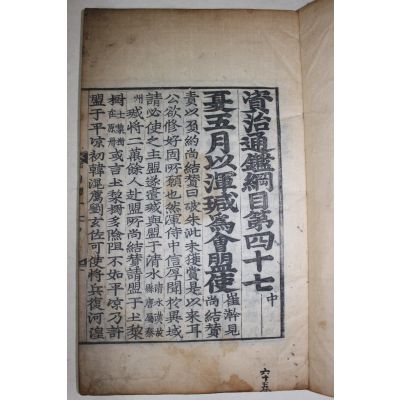 資治通鑑綱目第四十七 中
夏五月以渾瑊為會盟使 崔澣見尚結贊
責以負約尚結贊曰破朱泚未獲賞是以來耳
公欲修好固所願也然渾侍中信厚聞於異域
請必使之主盟遂遣瑊與盟于清水 清水漢故縣唐屬秦州
瑊將二萬餘人赴盟所尚結贊請盟于土棃
樹 土棃樹在原州 或言土棃樹多險阻不如平凉乃許
盟于平凉初韓滉薦劉玄佐可使將兵復河湟